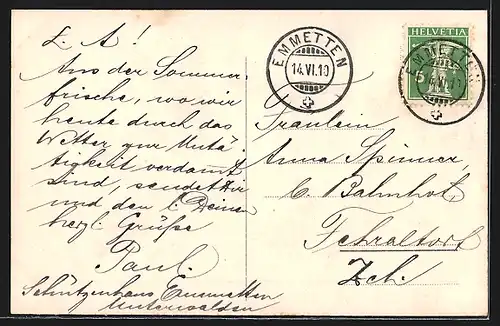 L. A!
Aus der Sommer-
frische, wo wir
heute durch das
Wetter zur Untä-
tigkeit verdammt
sind, sendet Dir
und den l. Deinen
herzl. Grüsse
Paul.
Schützenhaus Emmetten
Unterwalden
EMMETTEN
14.VI.10
HELVETIA
EMMETTEN
Fräulein
Anna Spinner,
b. Bahnhof,
Fehraltorf
Zch.